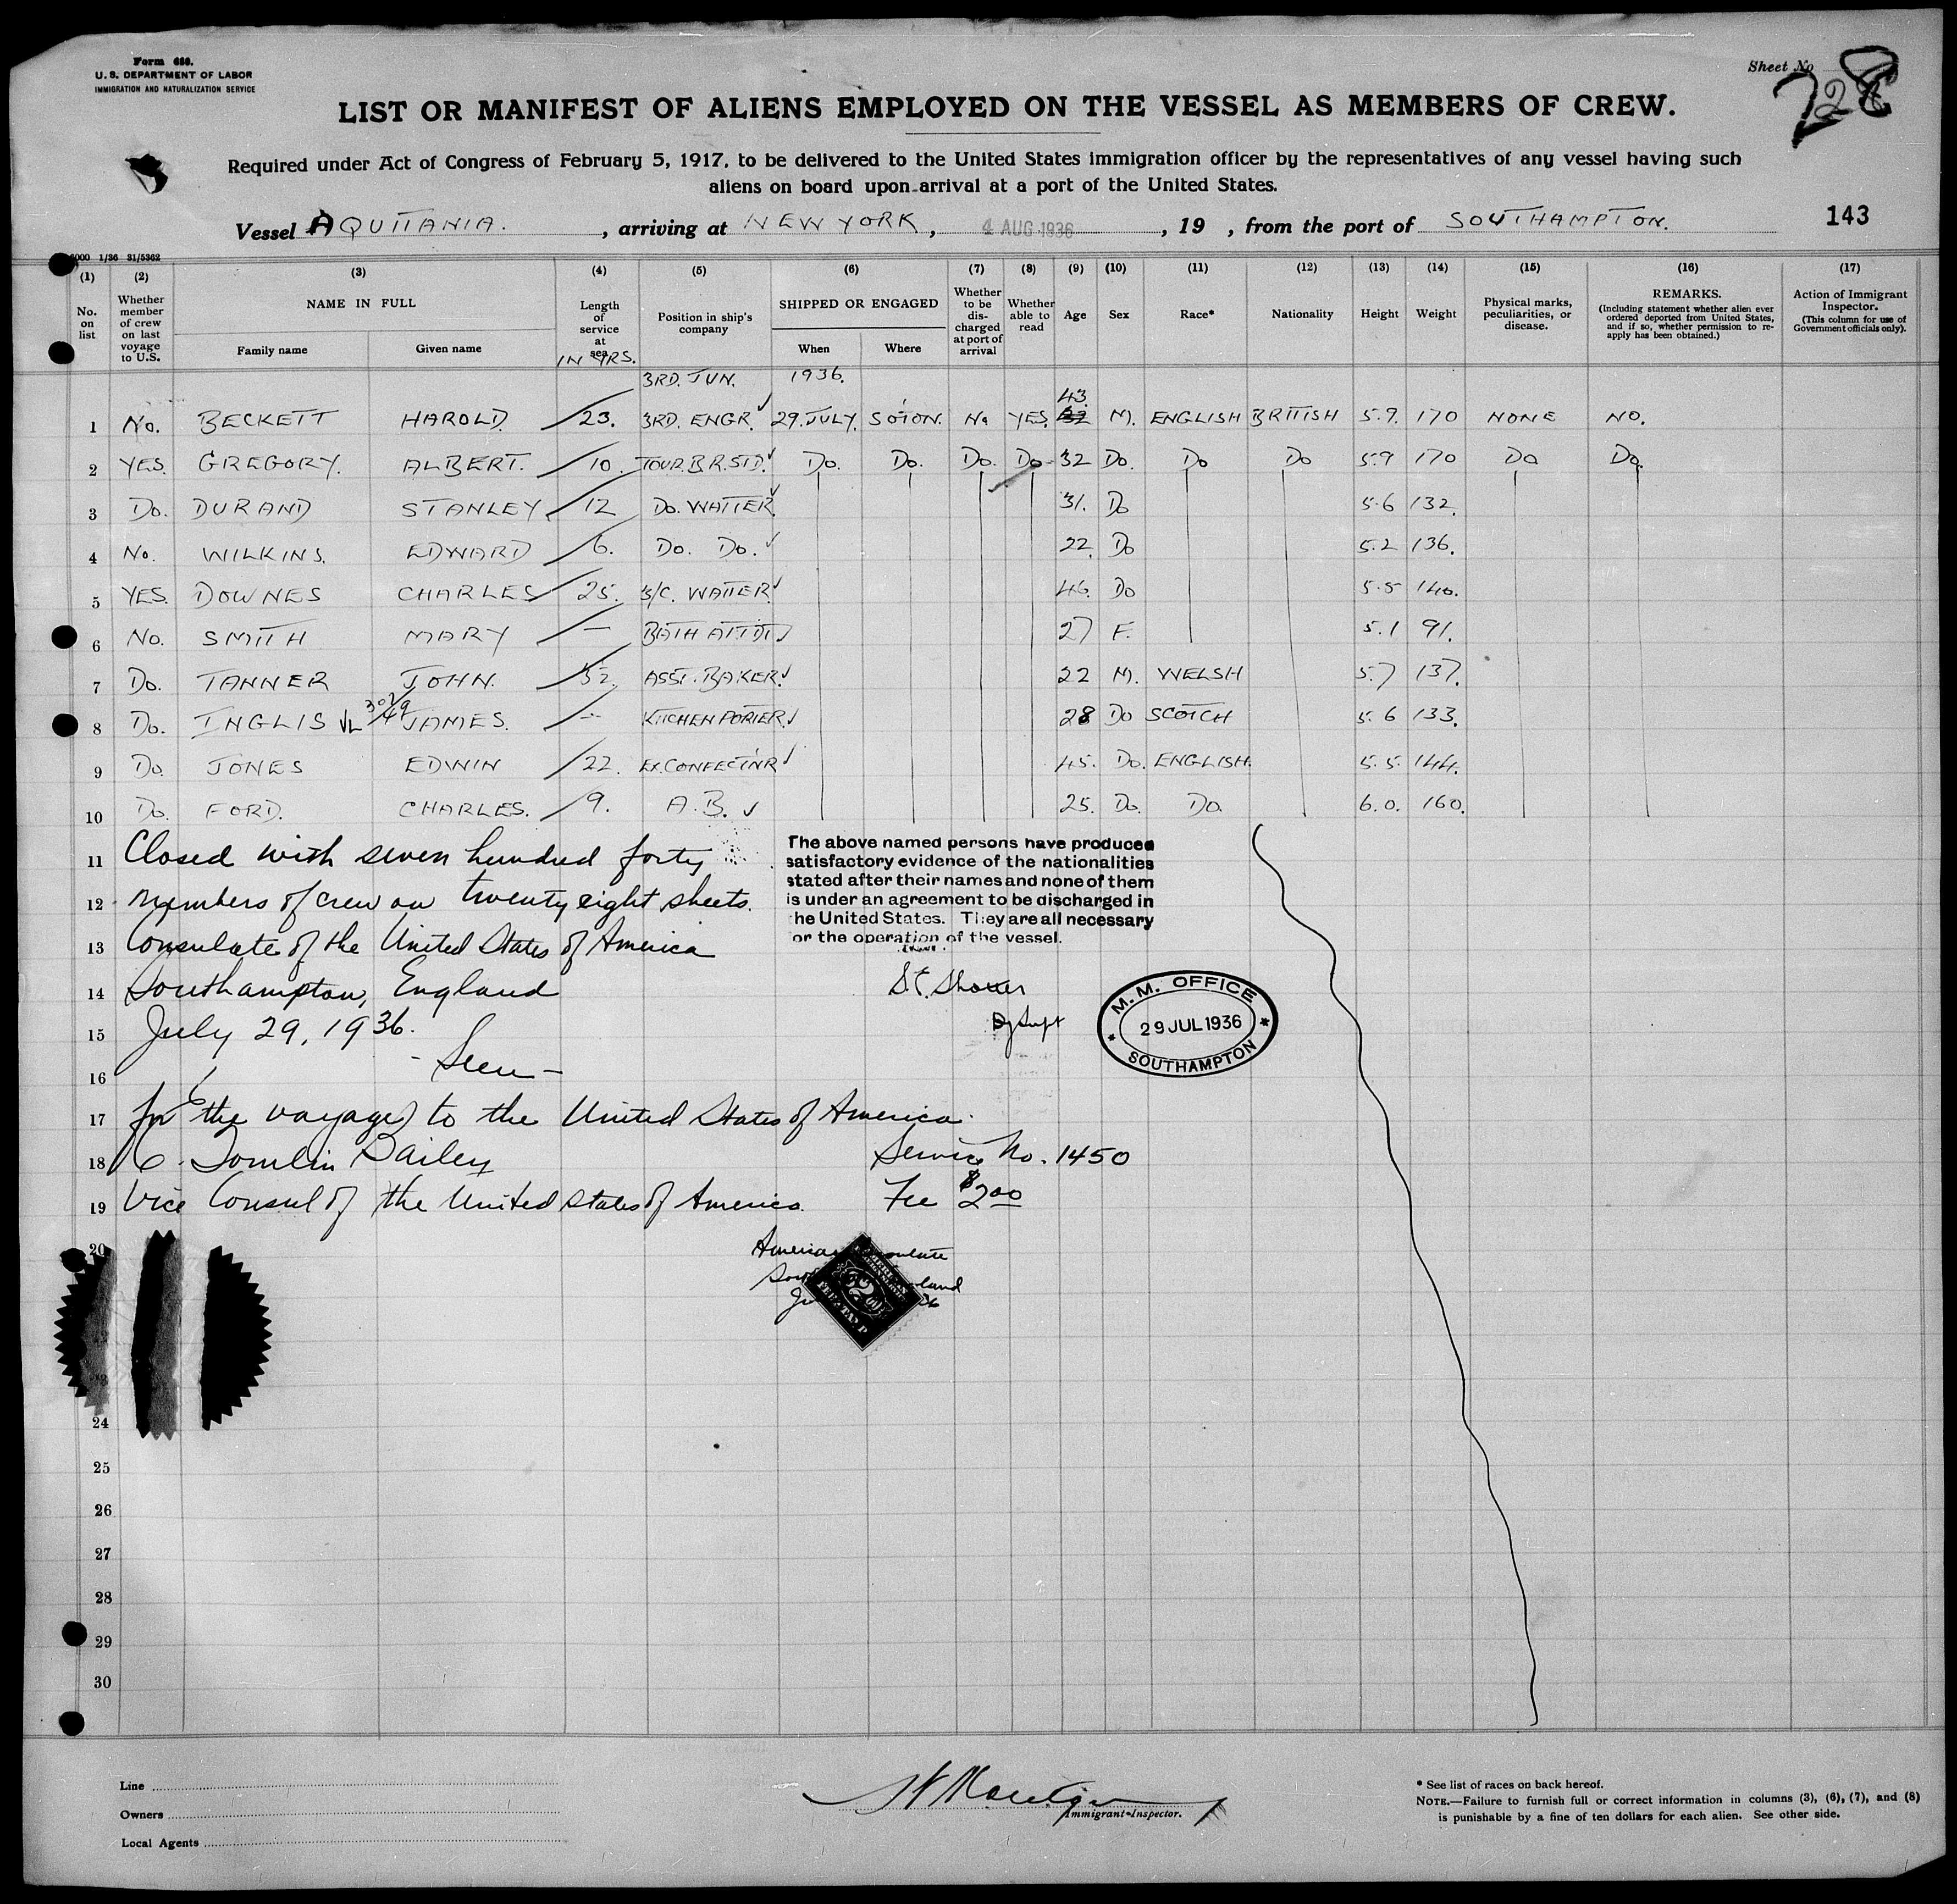 Form 680.
U. S. DEPARTMENT OF LABOR
IMMIGRATION AND NATURALIZATION SERVICE
Sheet No
28
LIST OR MANIFEST OF ALIENS EMPLOYED ON THE VESSEL AS MEMBERS OF CREW.
Required under Act of Congress of February 5, 1917, to be delivered to the United States immigration officer by the representatives of any vessel having such
aliens on board upon arrival at a port of the United States.
Vessel AQUITANIA. , arriving at NEW YORK , 4 AUG 1936 , 19 , from the port of SOUTHAMPTON. 143
5000 1/36 31/5362
(1) (2) (3) (4) (5) (6) (7) (8) (9) (10) (11) (12) (13) (14) (15) (16) (17)
No. on list
Whether member of crew on last voyage to U.S.
NAME IN FULL
Family name Given name
Length of service at sea IN YRS.
Position in ship's company
SHIPPED OR ENGAGED
When Where
Whether to be discharged at port of arrival
Whether able to read
Age
Sex
Race*
Nationality
Height
Weight
Physical marks, peculiarities, or disease.
REMARKS.
(Including statement whether alien ever ordered deported from United States, and if so, whether permission to reapply has been obtained.)
Action of Immigrant Inspector.
(This column for use of Government officials only).
3RD. JUN. 1936.
43
1 No. BECKETT HAROLD. 23. 3RD. ENGR. 29.JULY. SOTON. No YES. M. ENGLISH BRITISH 5.9. 170 NONE NO.
2 YES. GREGORY. ALBERT. 10. TOUR.B.R.STD. Do. Do. Do. Do 32 Do. Do Do 5.9 170 Do Do.
3 Do. DURAND STANLEY. 12 Do. WAITER. 31. Do 5.6 132.
4 No. WILKINS. EDWARD 6. Do. Do. 22. Do 5.2 136.
5 YES. DOWNES CHARLES 25. WAITER. 46. Do 5.5 140.
6 No. SMITH MARY — BATH ATTDT 27 F. 5.1 91.
7 Do. TANNER JOHN. ASST. BAKER. 22 M. WELSH 5.7 137.
8 Do. INGLIS JAMES. — KITCHEN PORTER. 28 Do SCOTCH 5.6 133.
9 Do. JONES EDWIN 22. EX.CONFECTNR 45. Do. ENGLISH. 5.5. 144.
10 Do. FORD. CHARLES. 9. A.B. 25. Do. Do. 6.0. 160.
11 Closed with seven hundred forty
12 members of crew on twenty eight sheets.
13 Consulate of the United States of America
14 Southampton, England
15 July 29, 1936.
16 - Seen -
17 for the voyage to the United States of America.
18 C. Tomlin Bailey Service No. 1450
19 Vice Consul of the United States of America. Fee $2.00
The above named persons have produced
satisfactory evidence of the nationalities
stated after their names and none of them
is under an agreement to be discharged in
the United States. They are all necessary
or the operation of the vessel.
M. M. OFFICE
29 JUL 1936
SOUTHAMPTON
20
24
25
26
27
28
29
30
Line
Owners
Local Agents
Immigrant Inspector.
* See list of races on back hereof.
NOTE.—Failure to furnish full or correct information in columns (3), (6), (7), and (8)
is punishable by a fine of ten dollars for each alien. See other side.